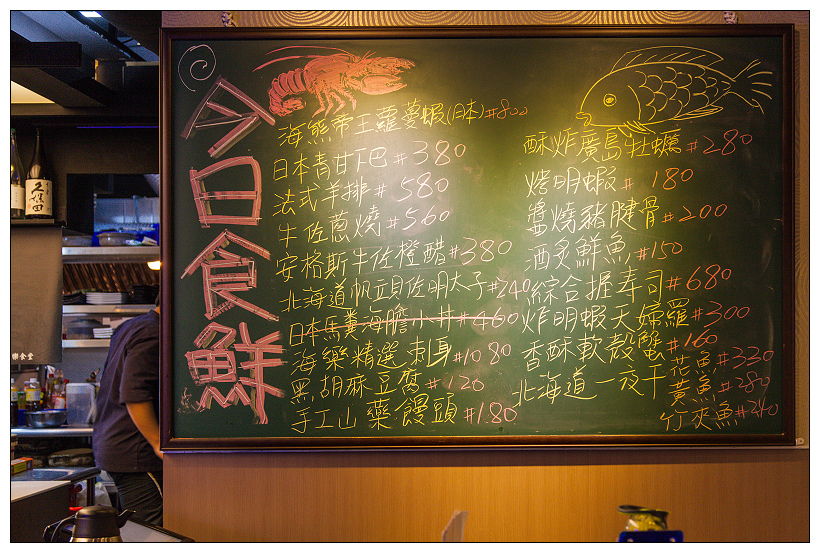 今日食鮮
海熊帝王蘿蔓蝦(日本)#800
日本青甘下巴#380
法式羊排#580
牛佐蔥燒#560
安格斯牛佐橙醋#380
北海道帆立貝佐明太子#240
日本馬糞海膽小丼#460
海樂精選刺身#1080
黑胡麻豆腐#120
手工山藥饅頭#180
酥炸廣島牡蠣#280
烤明蝦#180
醬燒豬腱骨#200
酒炙鮮魚#150
綜合握寿司#680
炸明蝦天婦羅#300
香酥軟殼蟹#160
北海道一夜干
花魚#330
黃魚#280
竹夾魚#240
久保田
樂食堂